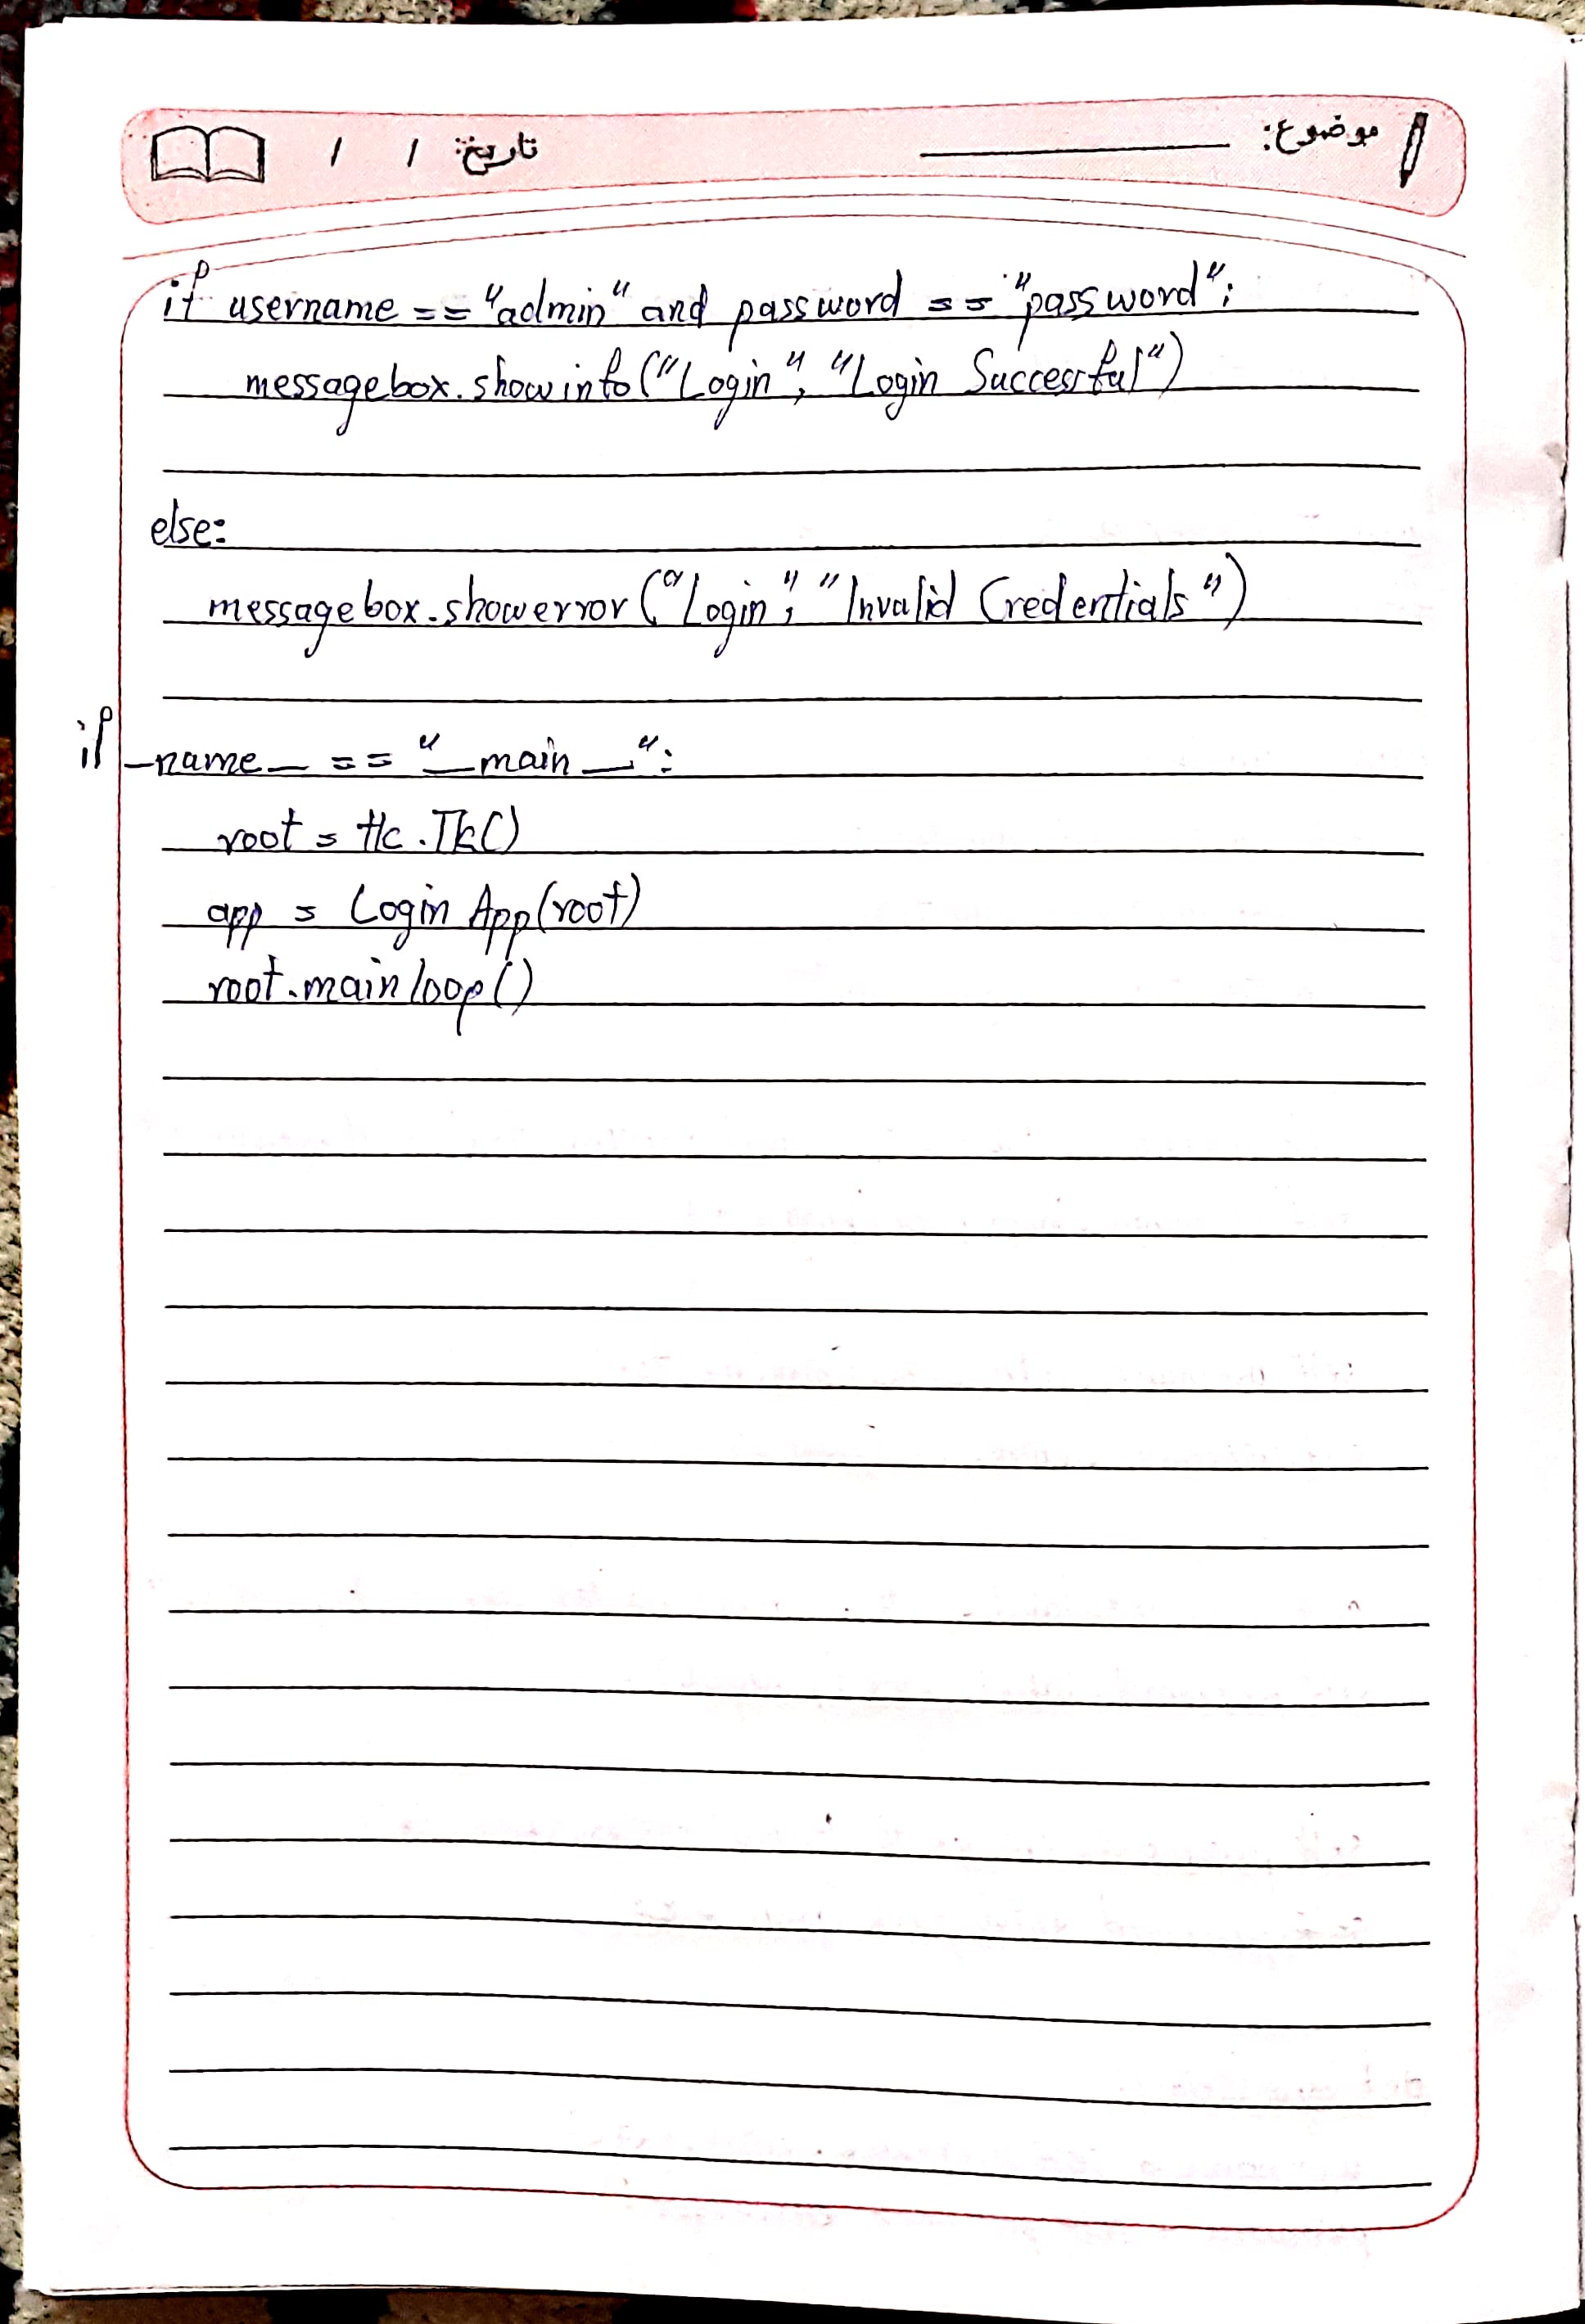 موضوع: تاریخ: / /
if username == "admin" and password == "password":
messagebox.showinfo("Login", "Login Successful")
else:
messagebox.showerror("Login", "Invalid Credentials")
if _name_ == "__main__":
root = tk.Tk()
app = LoginApp(root)
root.mainloop()